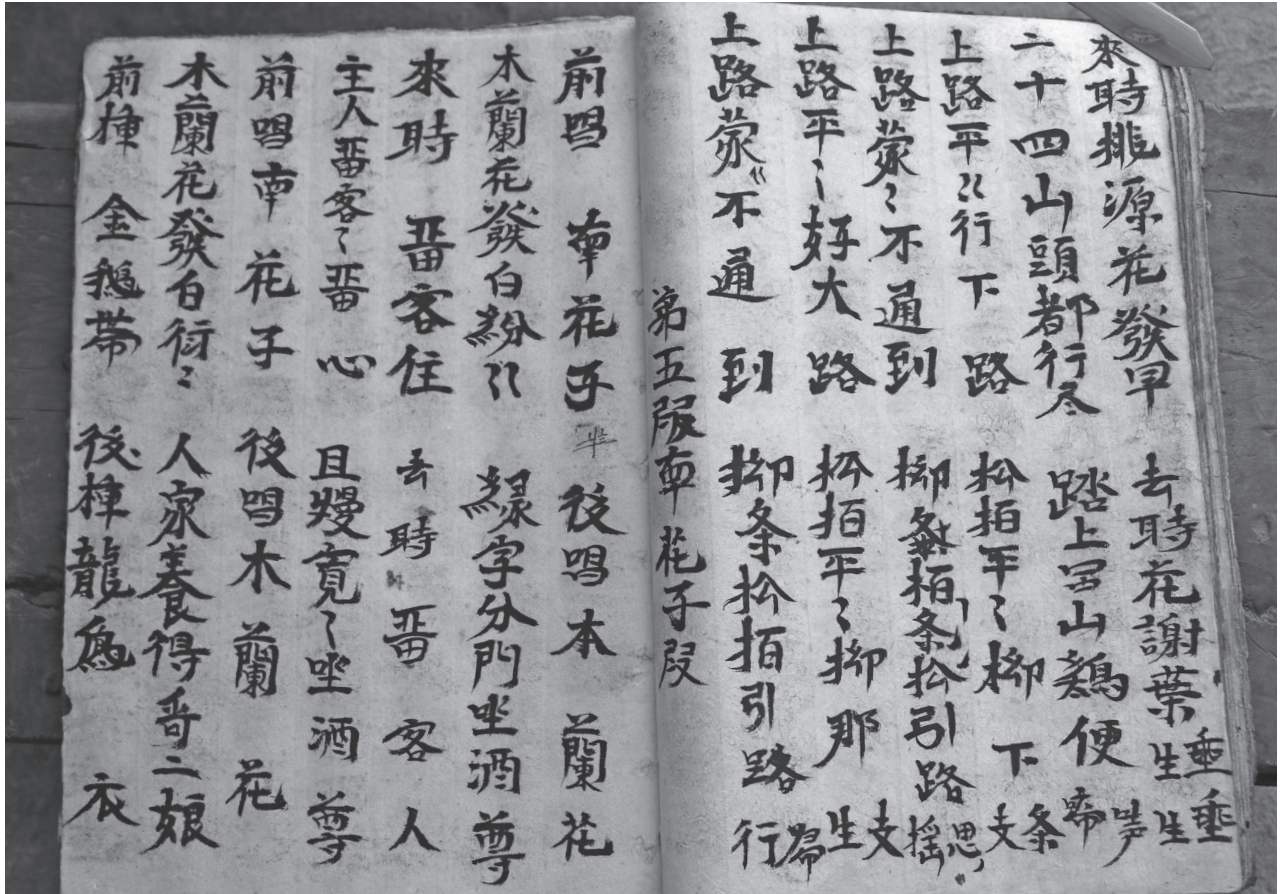 來時挑源花發早 去時花謝葉生生垂垂
二十四山頭都行尽 踏上 山鵝便啼
上路平〻行下路 松栢平〻柳下支条
上路蒙〻不通到 柳条栢条松引路
上路平〻好大路 松栢平〻柳那生支
上路蒙〻不通到 柳条松栢引路行
第五段南花子段
前唱南花子 後唱本蘭花
木蘭花發白紛〻 緑字分門坐酒尊
來時畱客住 去時畱客人
主人畱客〻畱心 且熳寬〻坐酒尊
前唱南花子 後唱木蘭花
木蘭花發白衍〻 人家養得奇二娘
前 金鵝帶 後 龍鳳衣